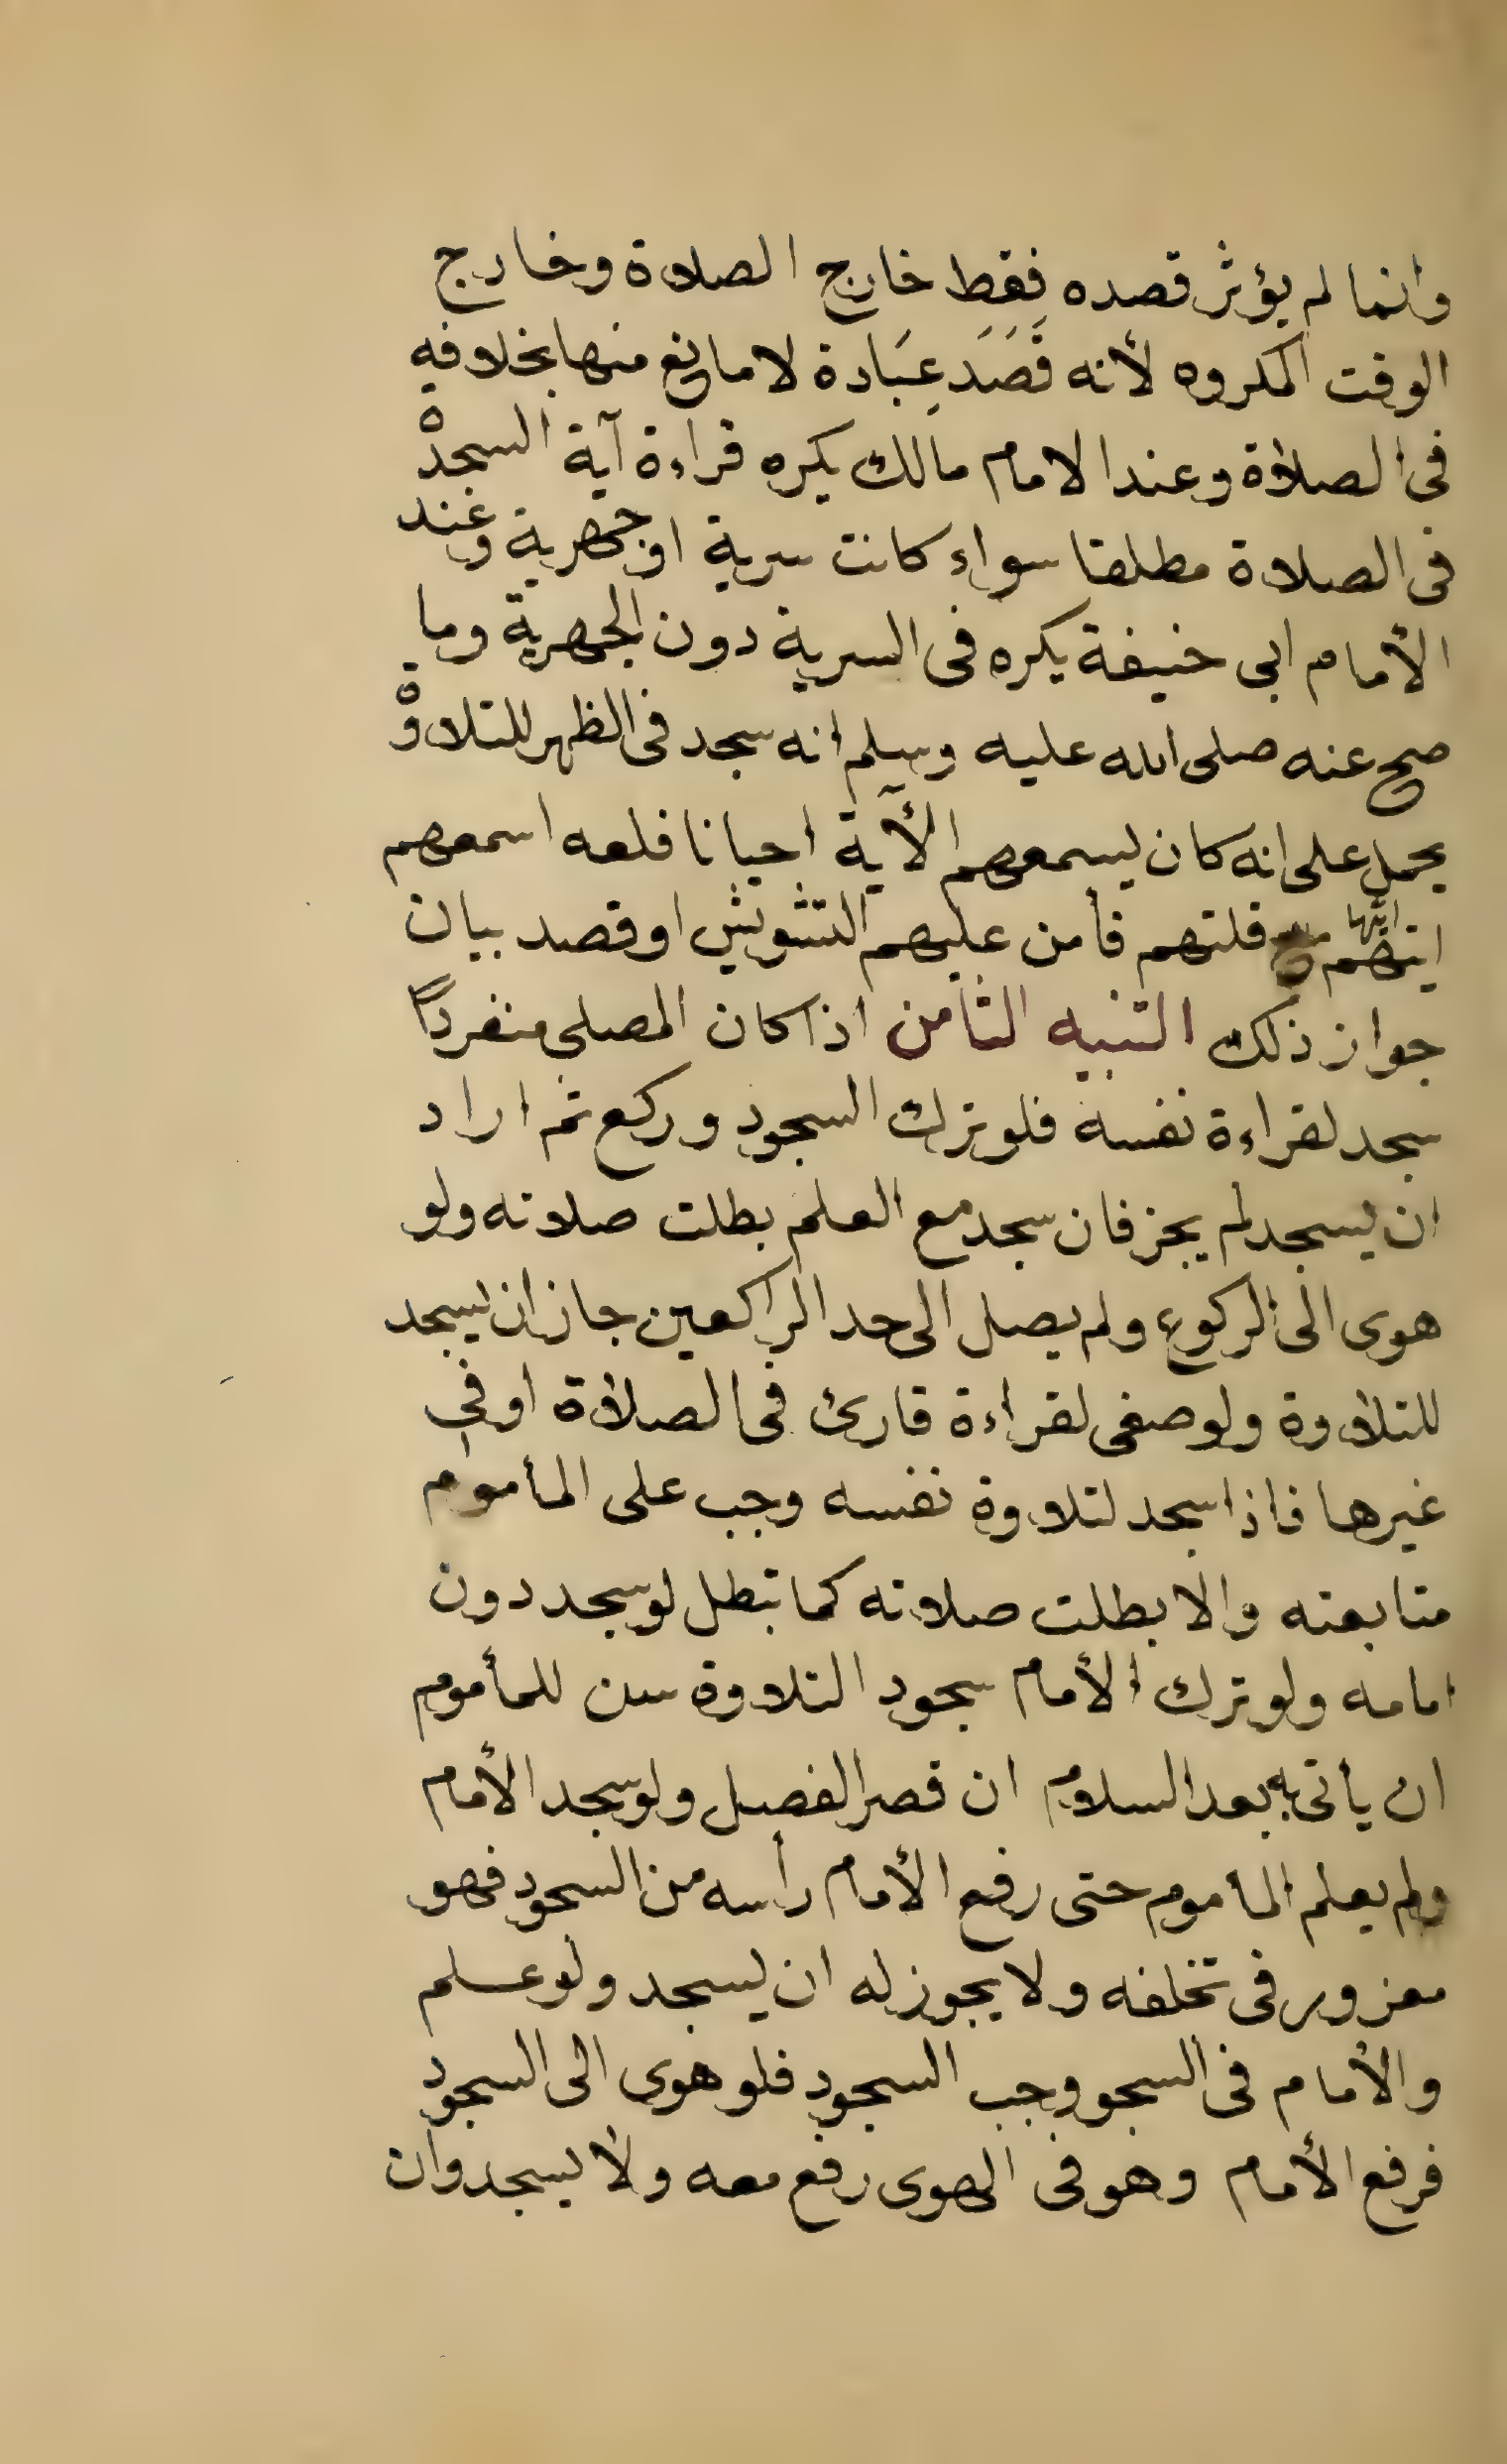 وانما لم يؤثر قصده فقط خارج الصلاة وخارج
الوقت المكروه لأنه قَصَدَ عِبَادة لا مانع منها بخلافه
فى الصلاة وعند الامام مالك يكره قراءة آية السجدة
فى الصلاة مطلقا سواء كانت سرية او جهرية وعند
الأمام ابى حنيفة يكره فى السرية دون الجهرية وما
صح عنه صلى الله عليه وسلم انه سجد فى الظهر للتلاوة
يحمل على انه كان يسمعهم الأية احيانا فلعه اسمعهم
ايتها مع قلتهم فأمن عليهم التشويش او قصد بيان
جواز ذلك التنبيه الثامن اذا كان المصلى منفردًا
سجد لقراءة نفسه فلو ترك السجود وركع ثم اراد
ان يسجد لم يجز فان سجد مع العلم بطلت صلاته ولو
هوى الى الركوع ولم يصل الى حد الراكعين جاز ان يسجد
للتلاوة ولو صغى لقراءة قارئ فى الصلاة او فى
غيرها فاذا سجد لتلاوة نفسه وجب على المأموم
متابعته والا بطلت صلاته كما تبطل لو سجد دون
امامه ولو ترك الأمام سجود التلاوة سن للمأموم
ان يأتى به بعد السلام ان قصر الفصل ولو سجد الأمام
ولم يعلم الماموم حتى رفع الأمام رأسه من السجود فهو
معزور فى تخلفه ولا يجوز له ان يسجد ولو علم
والأمام فى السجو وجب السجود فلو هوى الى السجود
فرفع الأمام وهو فى الهوى رفع معه ولا يسجد وان